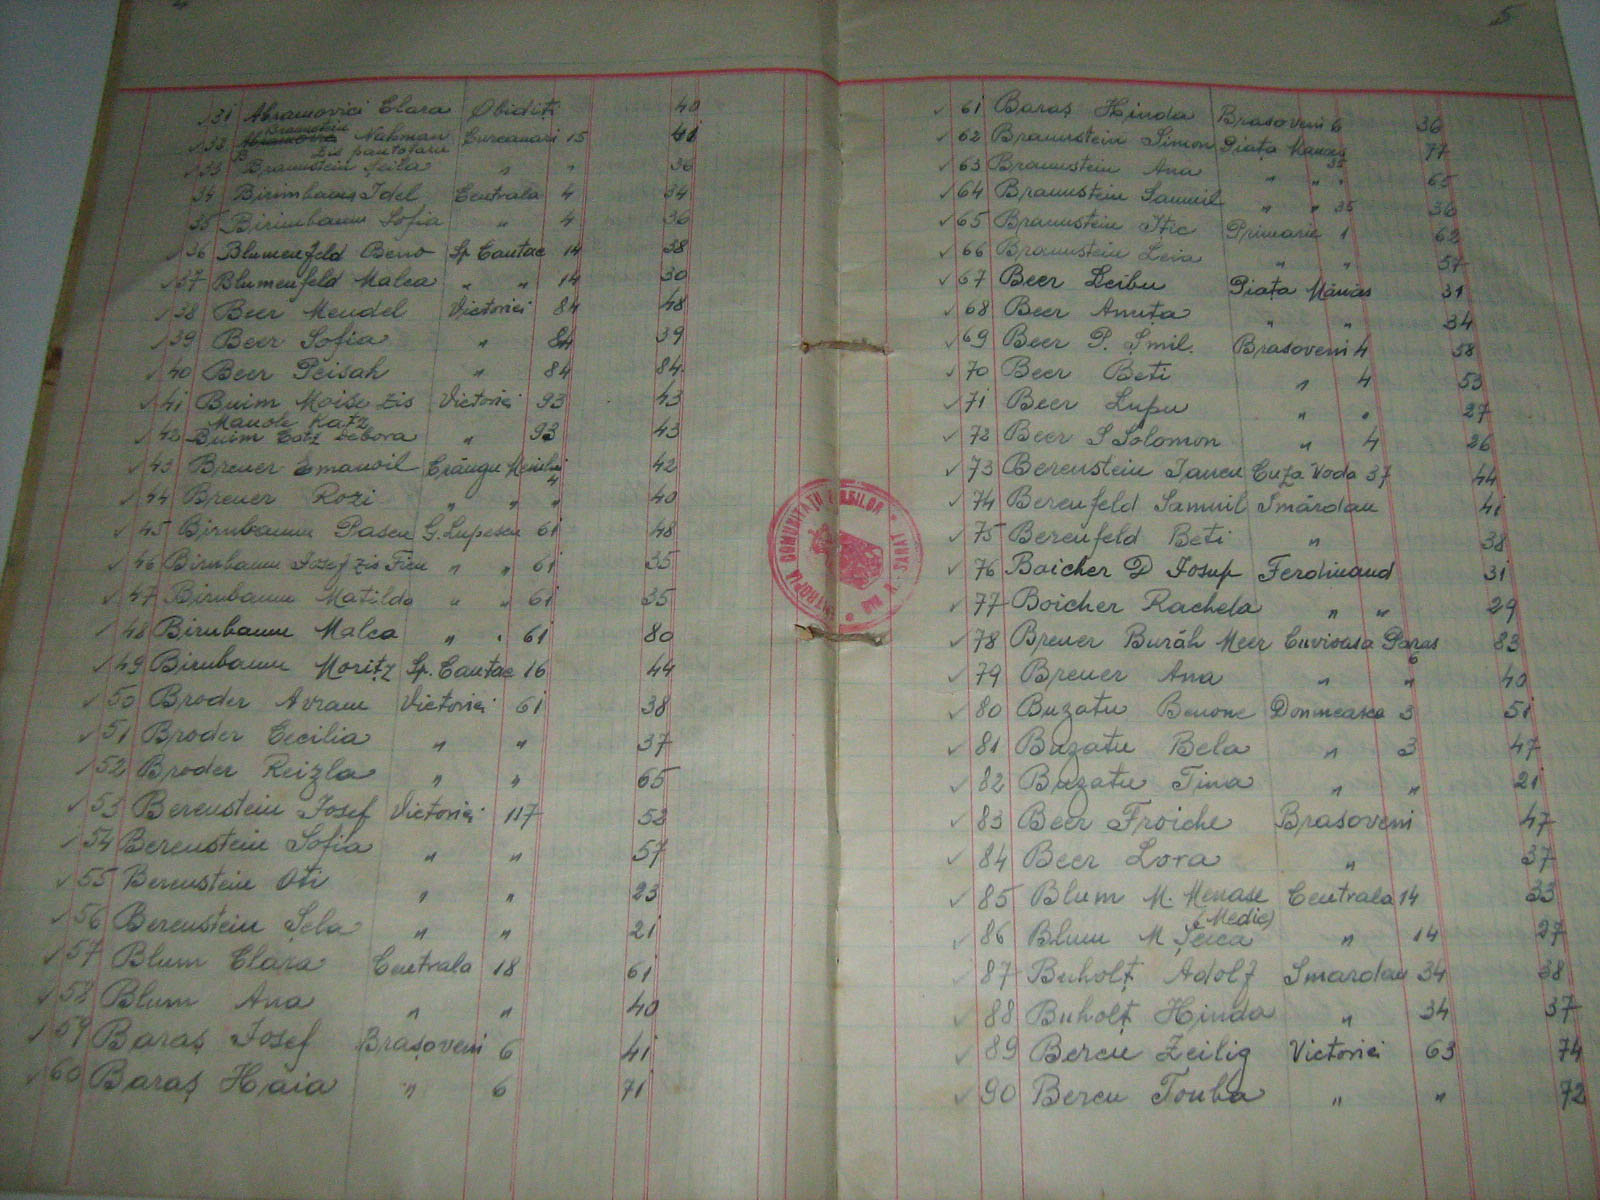 5
31 Abramovici Clara Obidiți 40
Braunstein
32 Nahman Curcanari 15 41
zis pantofaru
33 Braunstein Seila " " 36
34 Birimbaum Idel Centrala 4 34
35 Birimbaum Sofia " 4 36
36 Blumenfeld Beno Sp. Cantac 14 38
37 Blumenfeld Malca " " 14 30
38 Beer Mendel Victoriei 84 48
39 Beer Sofia " 84 39
40 Beer Peisah " 84 84
41 Buim Moise zis Victoriei 93 43
Manole Katz
42 Buim Catz Debora " 93 43
43 Breuer Emanoil Crângu 42
4
44 Breuer Rozi " " " 40
45 Birnbaum Pascu G. Lupescu 61 48
46 Birnbaum Iosef zis Ficu " " 61 35
47 Birnbaum Matilda " " 61 35
48 Birnbaum Malca " " 61 80
49 Birnbaum Moritz Sp. Cantac 16 44
50 Broder Avram Victoriei 61 38
51 Broder Cecilia " " 37
52 Broder Reizla " " 65
53 Berenstein Iosef Victoriei 117 52
54 Berenstein Sofia " " 57
55 Berenstein Oti " " 23
56 Berenstein Șela " " 21
57 Blum Clara Centrala 18 61
58 Blum Ana " " 40
59 Baraș Iosef Brașoveni 6 41
60 Baraș Haia " 6 71
61 Baraș Hinda Brasoveni 6 36
62 Braunstein Simon Piața 77
35
63 Braunstein Ana " " " 65
64 Braunstein Samuil " " 35 36
65 Braunstein Itic Primarie 1 62
66 Braunstein Leia " " 57
67 Beer Leibu Piața 31
68 Beer Anuța " " 34
69 Beer P. Șmil. Brasoveni 4 58
70 Beer Beti " 4 53
71 Beer Lupu " " 27
72 Beer S Solomon " 4 26
73 Berenstein Iancu Cuza Voda 37 44
74 Berenfeld Samuil Smârdan 41
75 Berenfeld Beti " 38
76 Boicher D Iosup Ferdinand 31
77 Boicher Rachela " " 29
78 Breuer Burăh Meer Cuvioasa Paras 83
6
79 Breuer Ana " " 40
80 Buzatu Benone Domneasca 3 51
81 Buzatu Bela " 3 47
82 Buzatu Tina " " 21
83 Beer Froiche Brasoveni 47
84 Beer Lora " 37
85 Blum M. Menase Centrala 14 33
(Medic)
86 Blum M Șeica " 14 27
87 Buholț Adolf Smardan 34 38
88 Buholț Hinda " 34 37
89 Bercu Zeilig Victoriei 63 74
90 Bercu Touba " " 72
COMUNITATII